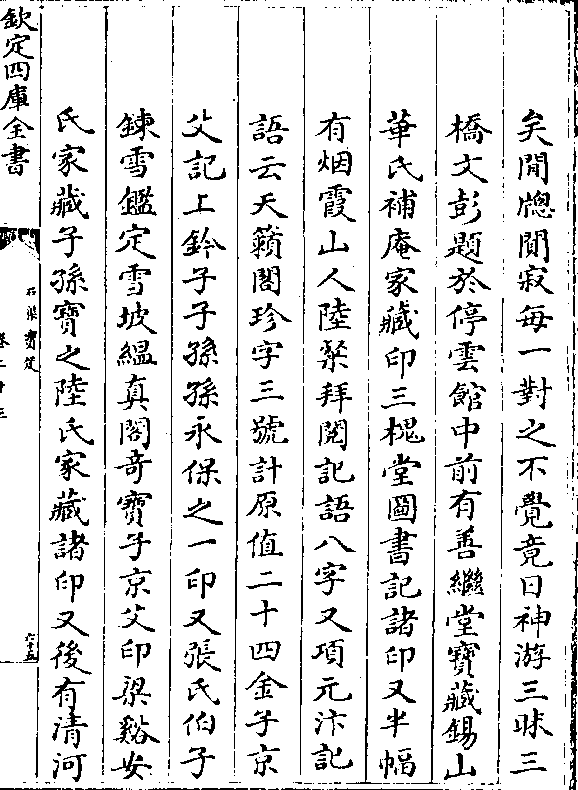 矣閒牕閴寂每一對之不覺竟日神游三昧三
橋文彭題於停雲館中前有善繼堂寶藏錫山
華氏補庵家藏印三槐堂圖書記諸印又半幅
有烟霞山人陸燊拜閱記語八字又項元汴記
語云天籟閣珍字三號計原值二十四金子京
父記上鈐子子孫孫永保之一印又張氏伯子
鍊雪鑑定雪坡緼真閣奇寶子京父印梁谿安
氏家藏子孫寶之陸氏家藏諸印又後有清河
欽定四庫全書
石渠寳笈
卷二十三
六十五